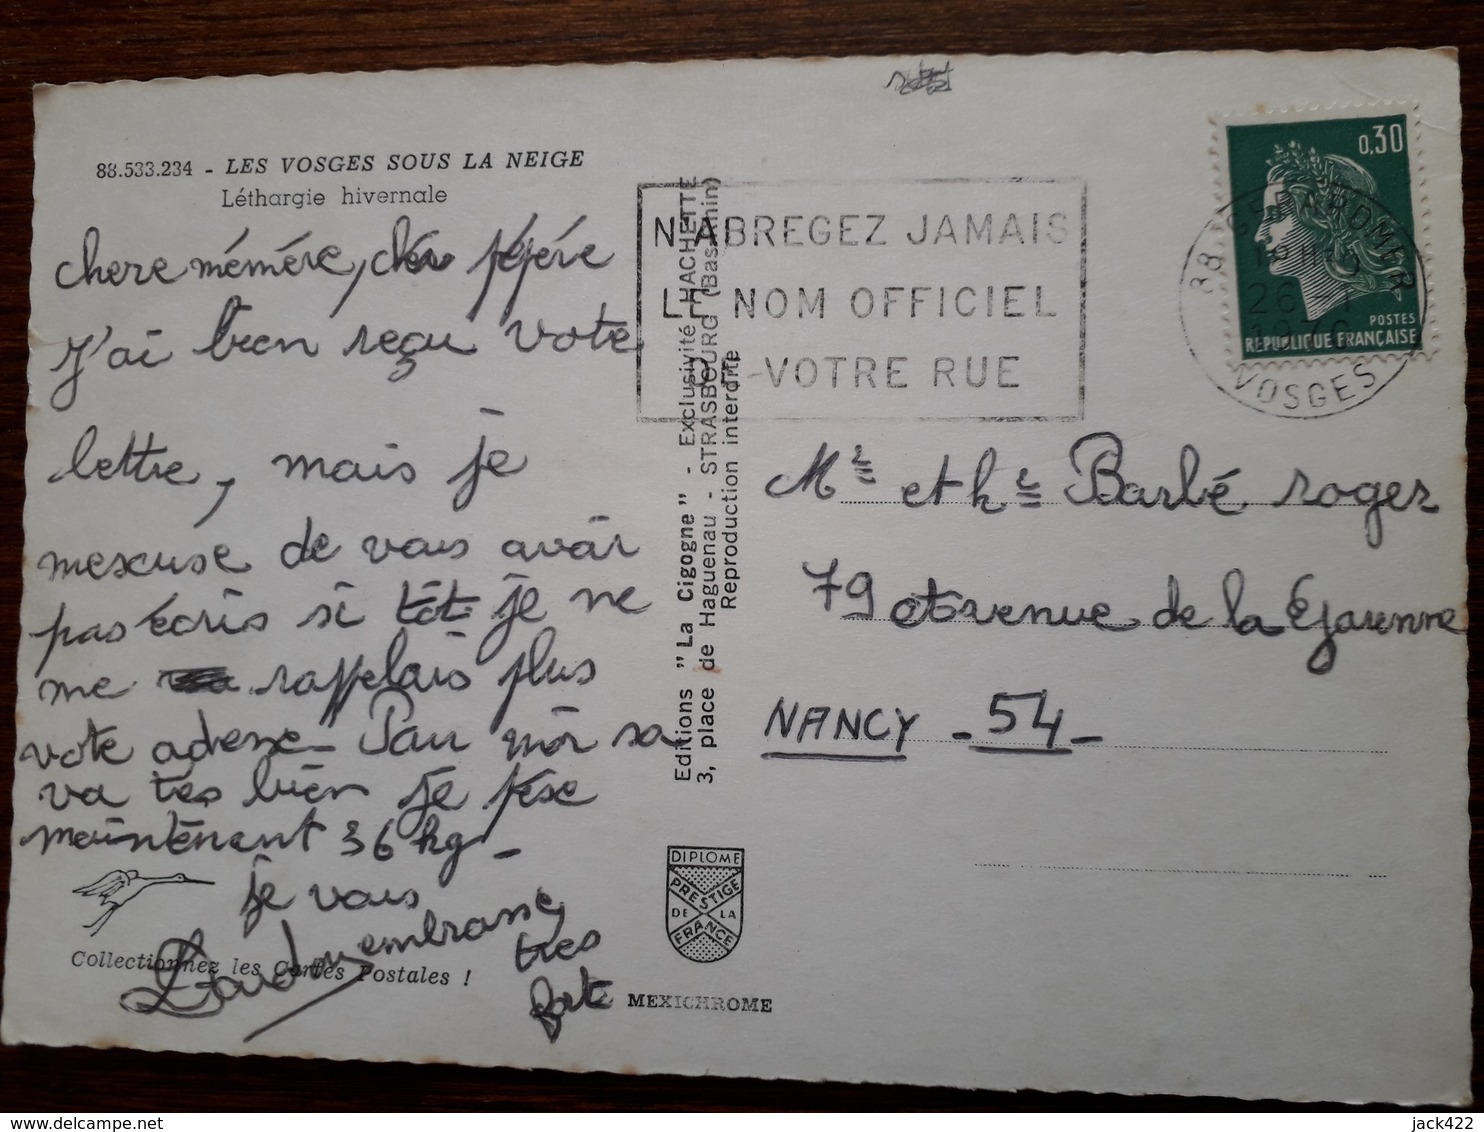 88.533.234 - LES VOSGES SOUS LA NEIGE
Léthargie hivernale
chere mémére, cher pépére
J'ai bien reçu vote
lettre, mais je
mexcuse de vous avoir
pas écris si tôt je ne
me rappelais plus
vote adresse_ Pour moi sa
va tres bien je pèse
maintenant 36 kg_
je vous
embrasse
tres
forte
Collectionnez les Cartes Postales !
Editions "La Cigogne" - Exclusivité HACHETTE
3, place de Haguenau - STRASBOURG (Bas-Rhin)
Reproduction interdite
DIPLOME
PRESTIGE
DE LA
FRANCE
MEXICHROME
N'ABREGEZ JAMAIS
LE NOM OFFICIEL
VOTRE RUE
0,30
POSTES
REPUBLIQUE FRANÇAISE
88 GERARDMER
26 - 1
VOSGES
Mr et Barbé roger
79 Avenue de la Garenne
NANCY - 54 -
delcampe.net
jack422